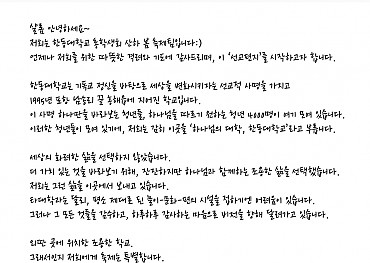 샬롬 안녕하세요~
저희는 한동대학교 총학생회 산하 봄 축제팀입니다:)
언제나 저희를 위한 따뜻한 격려와 기도에 감사드리며, 이 '선교편지'를 시작하고자 합니다.
한동대학교는 기독교 정신을 바탕으로 세상을 변화시키자는 선교적 사명을 가지고
1995년 포항 땅끝의 끝 동해숲에 지어진 학교입니다.
이 사명 하나만을 바라보는 청년들, 하나님을 따르기 원하는 청년 4000명이 여기 모여 있습니다.
이러한 청년들이 모여 있기에, 저희는 감히 이곳을 '하나님의 대학, 한동대학교'라고 부릅니다.
세상의 화려한 삶을 선택하지 않았습니다.
더 가치 있는 것을 바라보기 위해, 잔잔하지만 하나님과 함께하는 조용한 삶을 선택했습니다.
저희는 그런 삶을 이곳에서 보내고 있습니다.
타대학과는 달리, 변변 제대로 된 놀이-문화-편의 시설을 접하기엔 어려움이 있습니다.
그러나 그 모든 것들을 감수하고, 하루하루 감사하는 마음으로 비전을 향해 달려가고 있습니다.
외딴 곳에 위치한 조용한 학교.
그래서인지 저희에게 축제는 특별합니다.